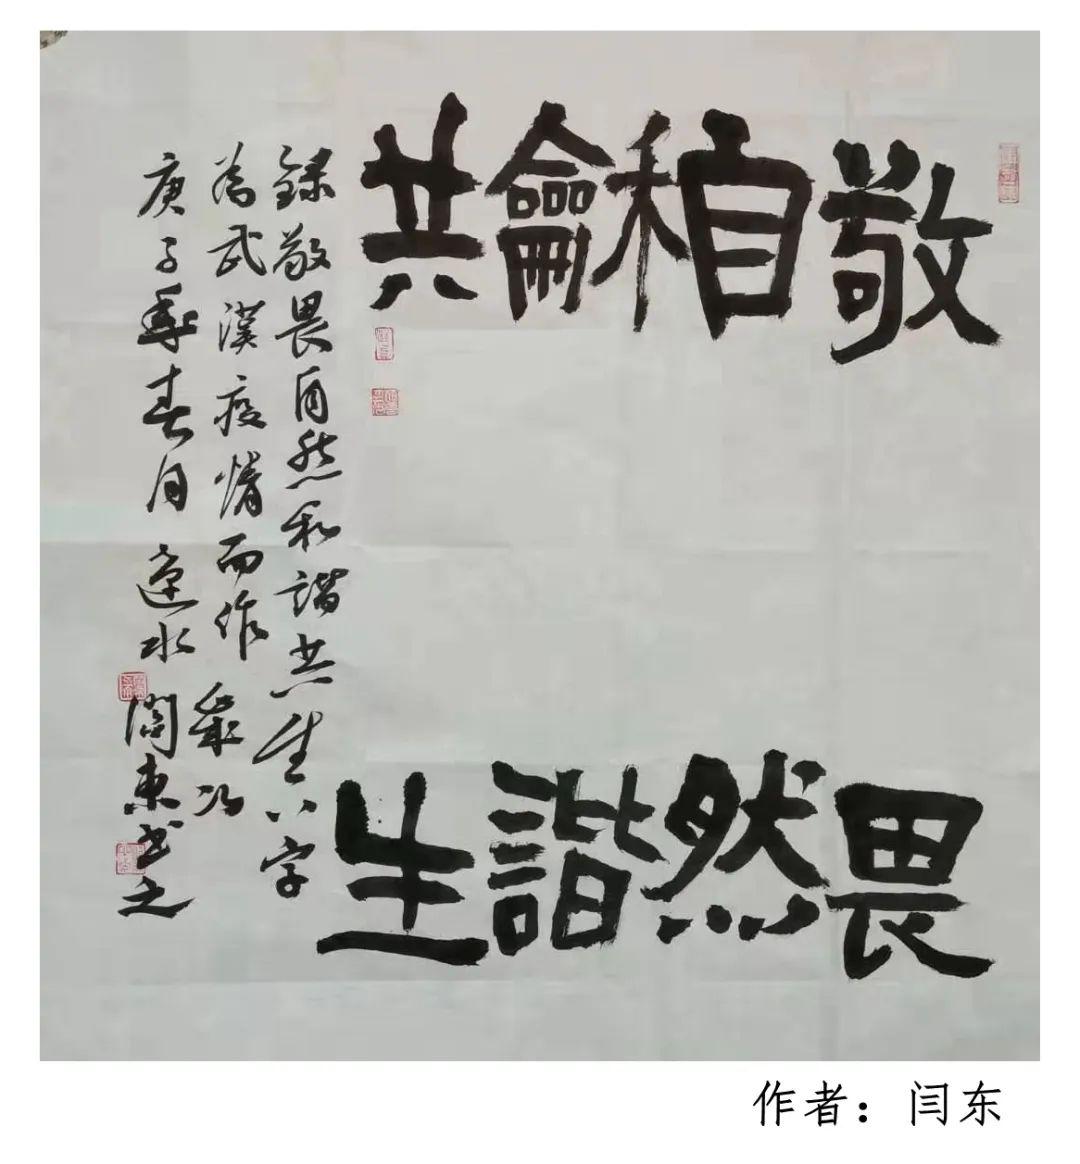 敬畏
自然
龢諧
共生
錄敬畏自然和諧共生八字
為武漢疫情而作 歲次
庚子年春月 水 閻東書之
作者：闫东